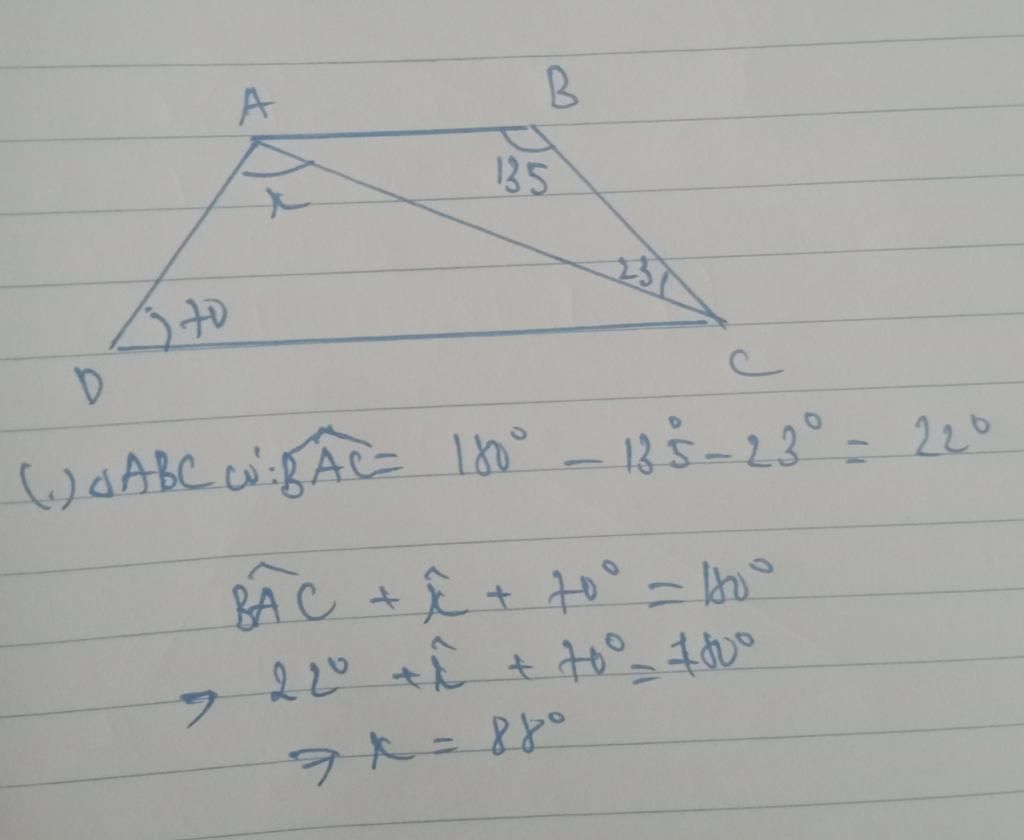 A B
135
x
23
70
D C
(.) △ABC có: BAC = 180° - 135° - 23° = 22°
BAC + x̂ + 70° = 180°
⇒ 22° + x̂ + 70° = 180°
⇒ x = 88°